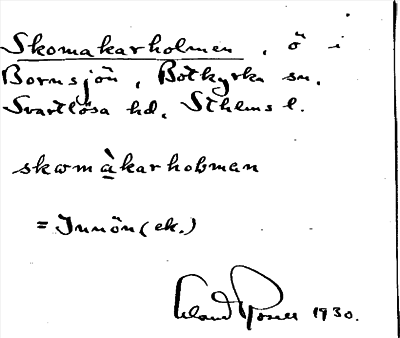 Skomakarholmen, ö i
Bornsjön, Botkyrka sn,
Svartlösa hd, Sthlms l.
skωmàkarholman
= Innön (ek.)
1930.